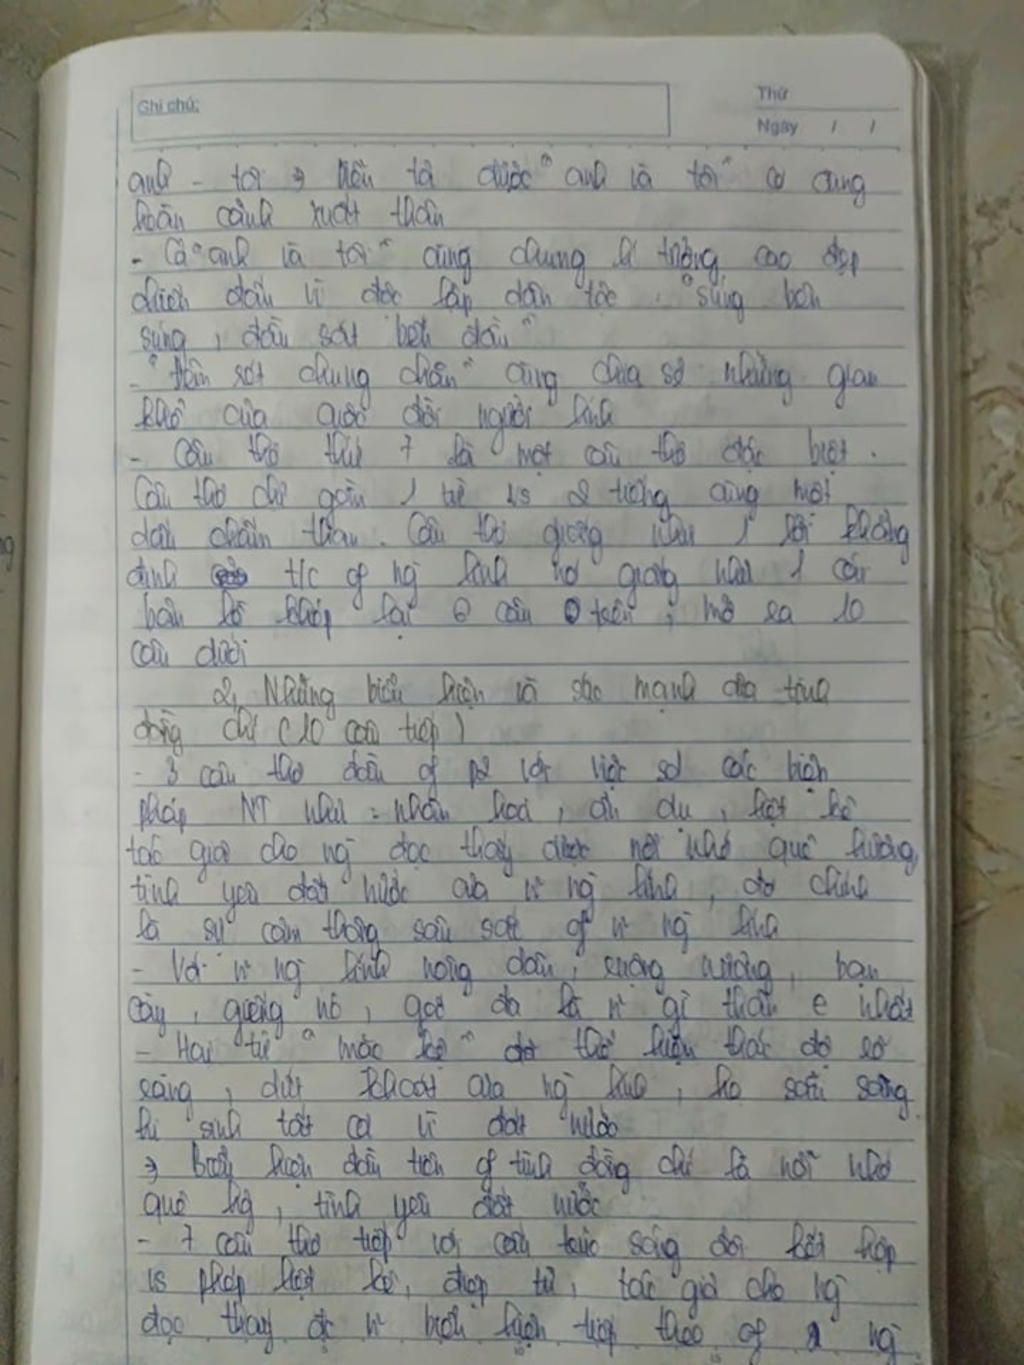 Ghi chú:
Thứ
Ngày / /
anh - tôi → diễn tả được "anh và tôi" có cùng
hoàn cảnh xuất thân
- Cả "anh và tôi" cùng chung lí tưởng cao đẹp
chiến đấu vì độc lập dân tộc "súng bên
súng, đầu sát bên đầu"
- "Đêm rét chung chăn" cùng chia sẻ những gian
khổ của cuộc đời người lính
- Câu thơ thứ 7 là một câu thơ đặc biệt.
Câu thơ chỉ gồm 1 từ vs 2 tiếng cùng một
dấu chấm than. Câu thơ giống như 1 lời khẳng
định t/c of ng lính nó giống như 1 cái
bản lề khép lại 6 câu trên, mở ra 10
câu dưới
2, Những biểu hiện và sức mạnh của tình
đồng chí (10 câu tiếp)
- 3 câu thơ đầu of p2 với việc sd các biện
pháp NT như: nhân hoá, ẩn dụ, liệt kê
tác giả cho ng đọc thấy được nỗi nhớ quê hương,
tình yêu đất nước của n~ ng lính, đó chính
là sự cảm thông sâu sắc of n~ ng lính
- Với n~ ng lính nông dân, ruộng nương, bạn
cày, giếng nc, gốc đa là n~ gì thân e nhất
- Hai từ "mặc kệ" đã thể hiện thái độ rõ
ràng, dứt khoát của ng lính, họ sẵn sàng
hi sinh tất cả vì đất nước
→ Biểu hiện đầu tiên of tình đồng chí là nỗi nhớ
quê hg, tình yêu đất nước
- 7 câu thơ tiếp với cấu trúc sóng đôi kết hợp
vs phép liệt kê, điệp từ, tác giả cho ng
đọc thấy đc n~ biểu hiện tiếp theo of 2 ng